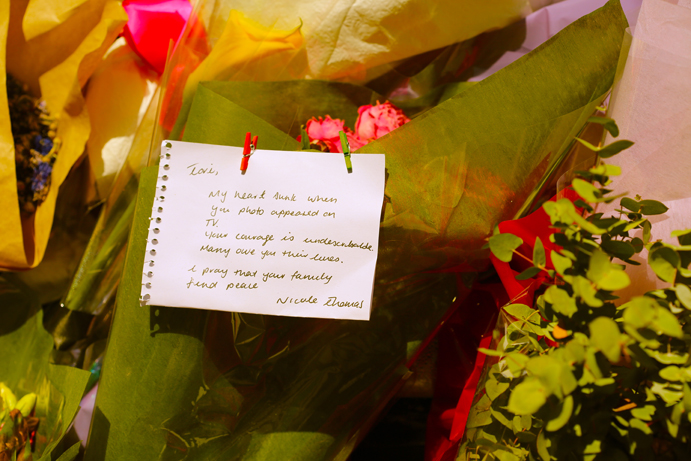 Tori,
My heart sunk when
you photo appeared on
TV.
Your courage is undescribable.
Many owe you their lives.
I pray that your family
find peace
Nicole Thomas